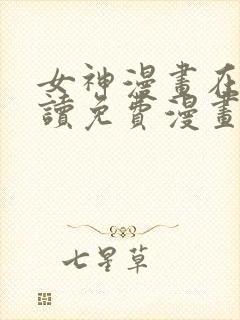 女神漫畫在
讀免費漫畫
七星草